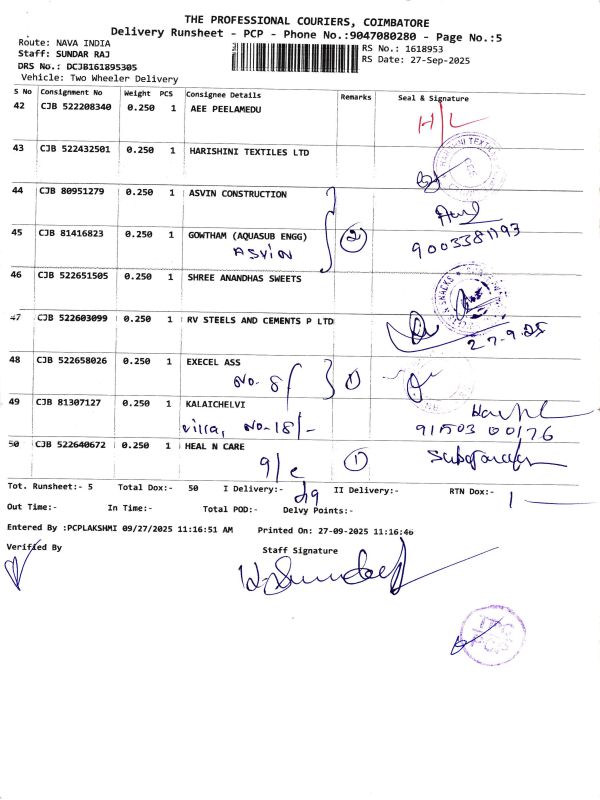 THE PROFESSIONAL COURIERS, COIMBATORE
Delivery Runsheet - PCP - Phone No.:9047080280 - Page No.:5
Route: NAVA INDIA
RS No.: 1618953
Staff: SUNDAR RAJ
RS Date: 27-Sep-2025
DRS No.: DCJB161895305
Vehicle: Two Wheeler Delivery
S No Consignment No Weight PCS Consignee Details Remarks Seal & Signature
42 CJB 522208340 0.250 1 AEE PEELAMEDU H/L
43 CJB 522432501 0.250 1 HARISHINI TEXTILES LTD
44 CJB 80951279 0.250 1 ASVIN CONSTRUCTION
45 CJB 81416823 0.250 1 GOWTHAM (AQUASUB ENGG) 2
ASVIN
46 CJB 522651505 0.250 1 SHREE ANANDHAS SWEETS
47 CJB 522603099 0.250 1 RV STEELS AND CEMENTS P LTD
27.9.25
48 CJB 522658026 0.250 1 EXECEL ASS
No-8/ 1
49 CJB 81307127 0.250 1 KALAICHELVI
villa, No-18/-
50 CJB 522640672 0.250 1 HEAL N CARE
9/c 1
Tot. Runsheet:- 5 Total Dox:- 50 I Delivery:- 49 II Delivery:- RTN Dox:- 1
Out Time:- In Time:- Total POD:- Delvy Points:-
Entered By :PCPLAKSHMI 09/27/2025 11:16:51 AM Printed On: 27-09-2025 11:16:46
Verified By Staff Signature